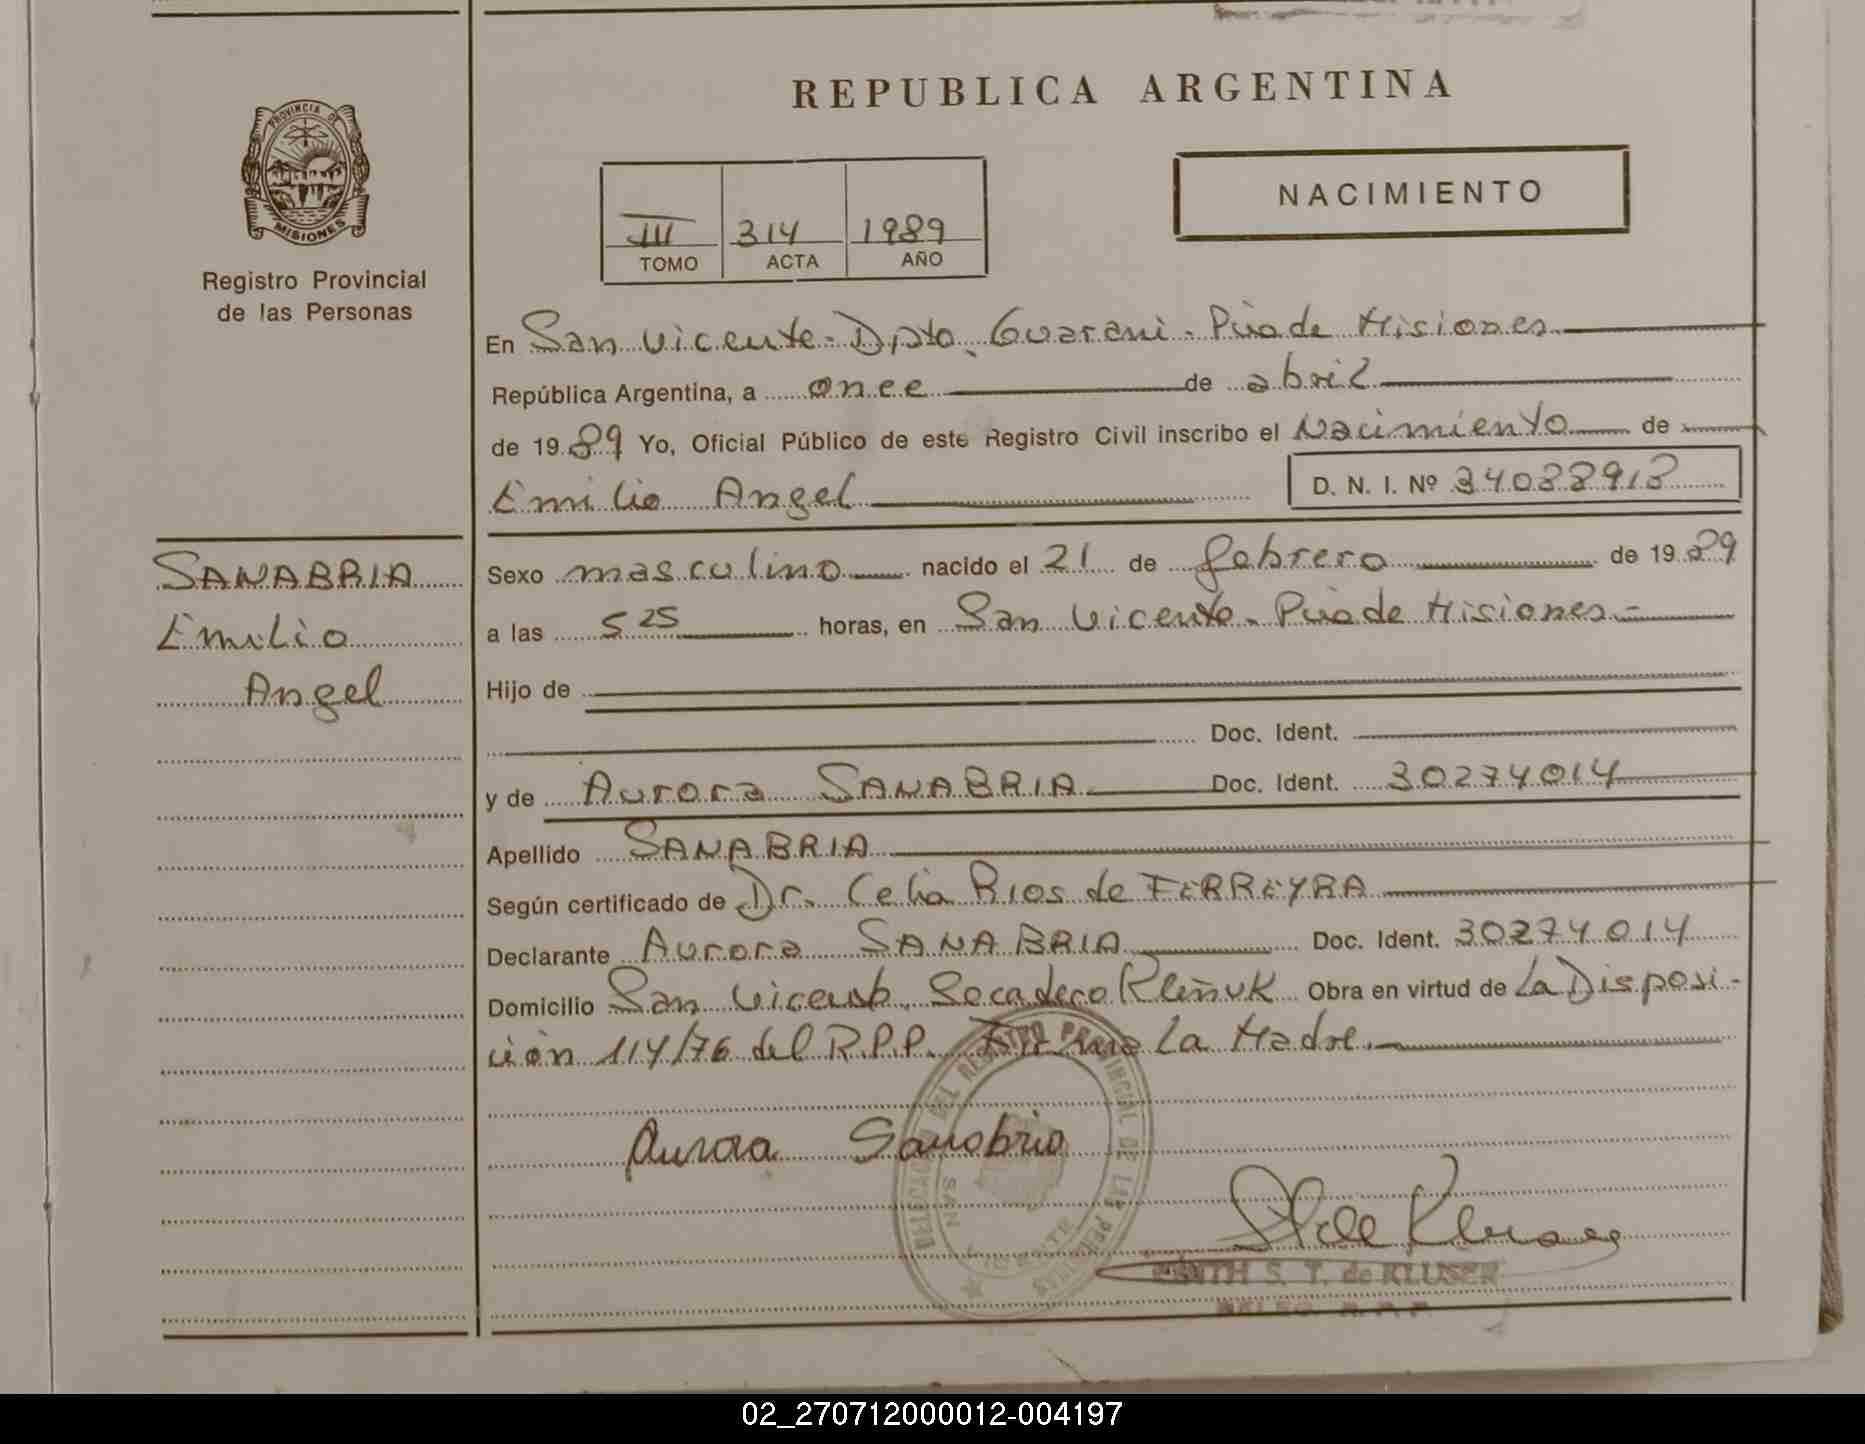 REPUBLICA ARGENTINA
PROVINCIA DE MISIONES
Registro Provincial
de las Personas
III 314 1989
TOMO ACTA AÑO
NACIMIENTO
En San Vicente - Dpto. Guarani - Pvia de Misiones
República Argentina, a once de abril
de 1989 Yo, Oficial Público de este Registro Civil inscribo el Nacimiento de
Emilio Angel
D. N. I. Nº
SANABRIA
Emilio
Angel
Sexo masculino nacido el 21 de febrero de 1989
a las 5 25 horas, en San Vicente - Pvia de Misiones.-
Hijo de
Doc. Ident.
y de Aurora SANABRIA Doc. Ident. 30274014
Apellido SANABRIA
Según certificado de Dr. Celia Rios de FERREYRA
Declarante Aurora SANABRIA Doc. Ident. 30274014
Domicilio San Vicente, Secadero Obra en virtud de La Disposi-
ción 114/76 del R.P.P. Firma La Madre.-
Aurora Sanabria
DELEGACION DEL REGISTRO PROVINCIAL DE LAS PERSONAS
SAN VICENTE
EDITH S. T. de KLUSER
R. P. P.
02_270712000012-004197